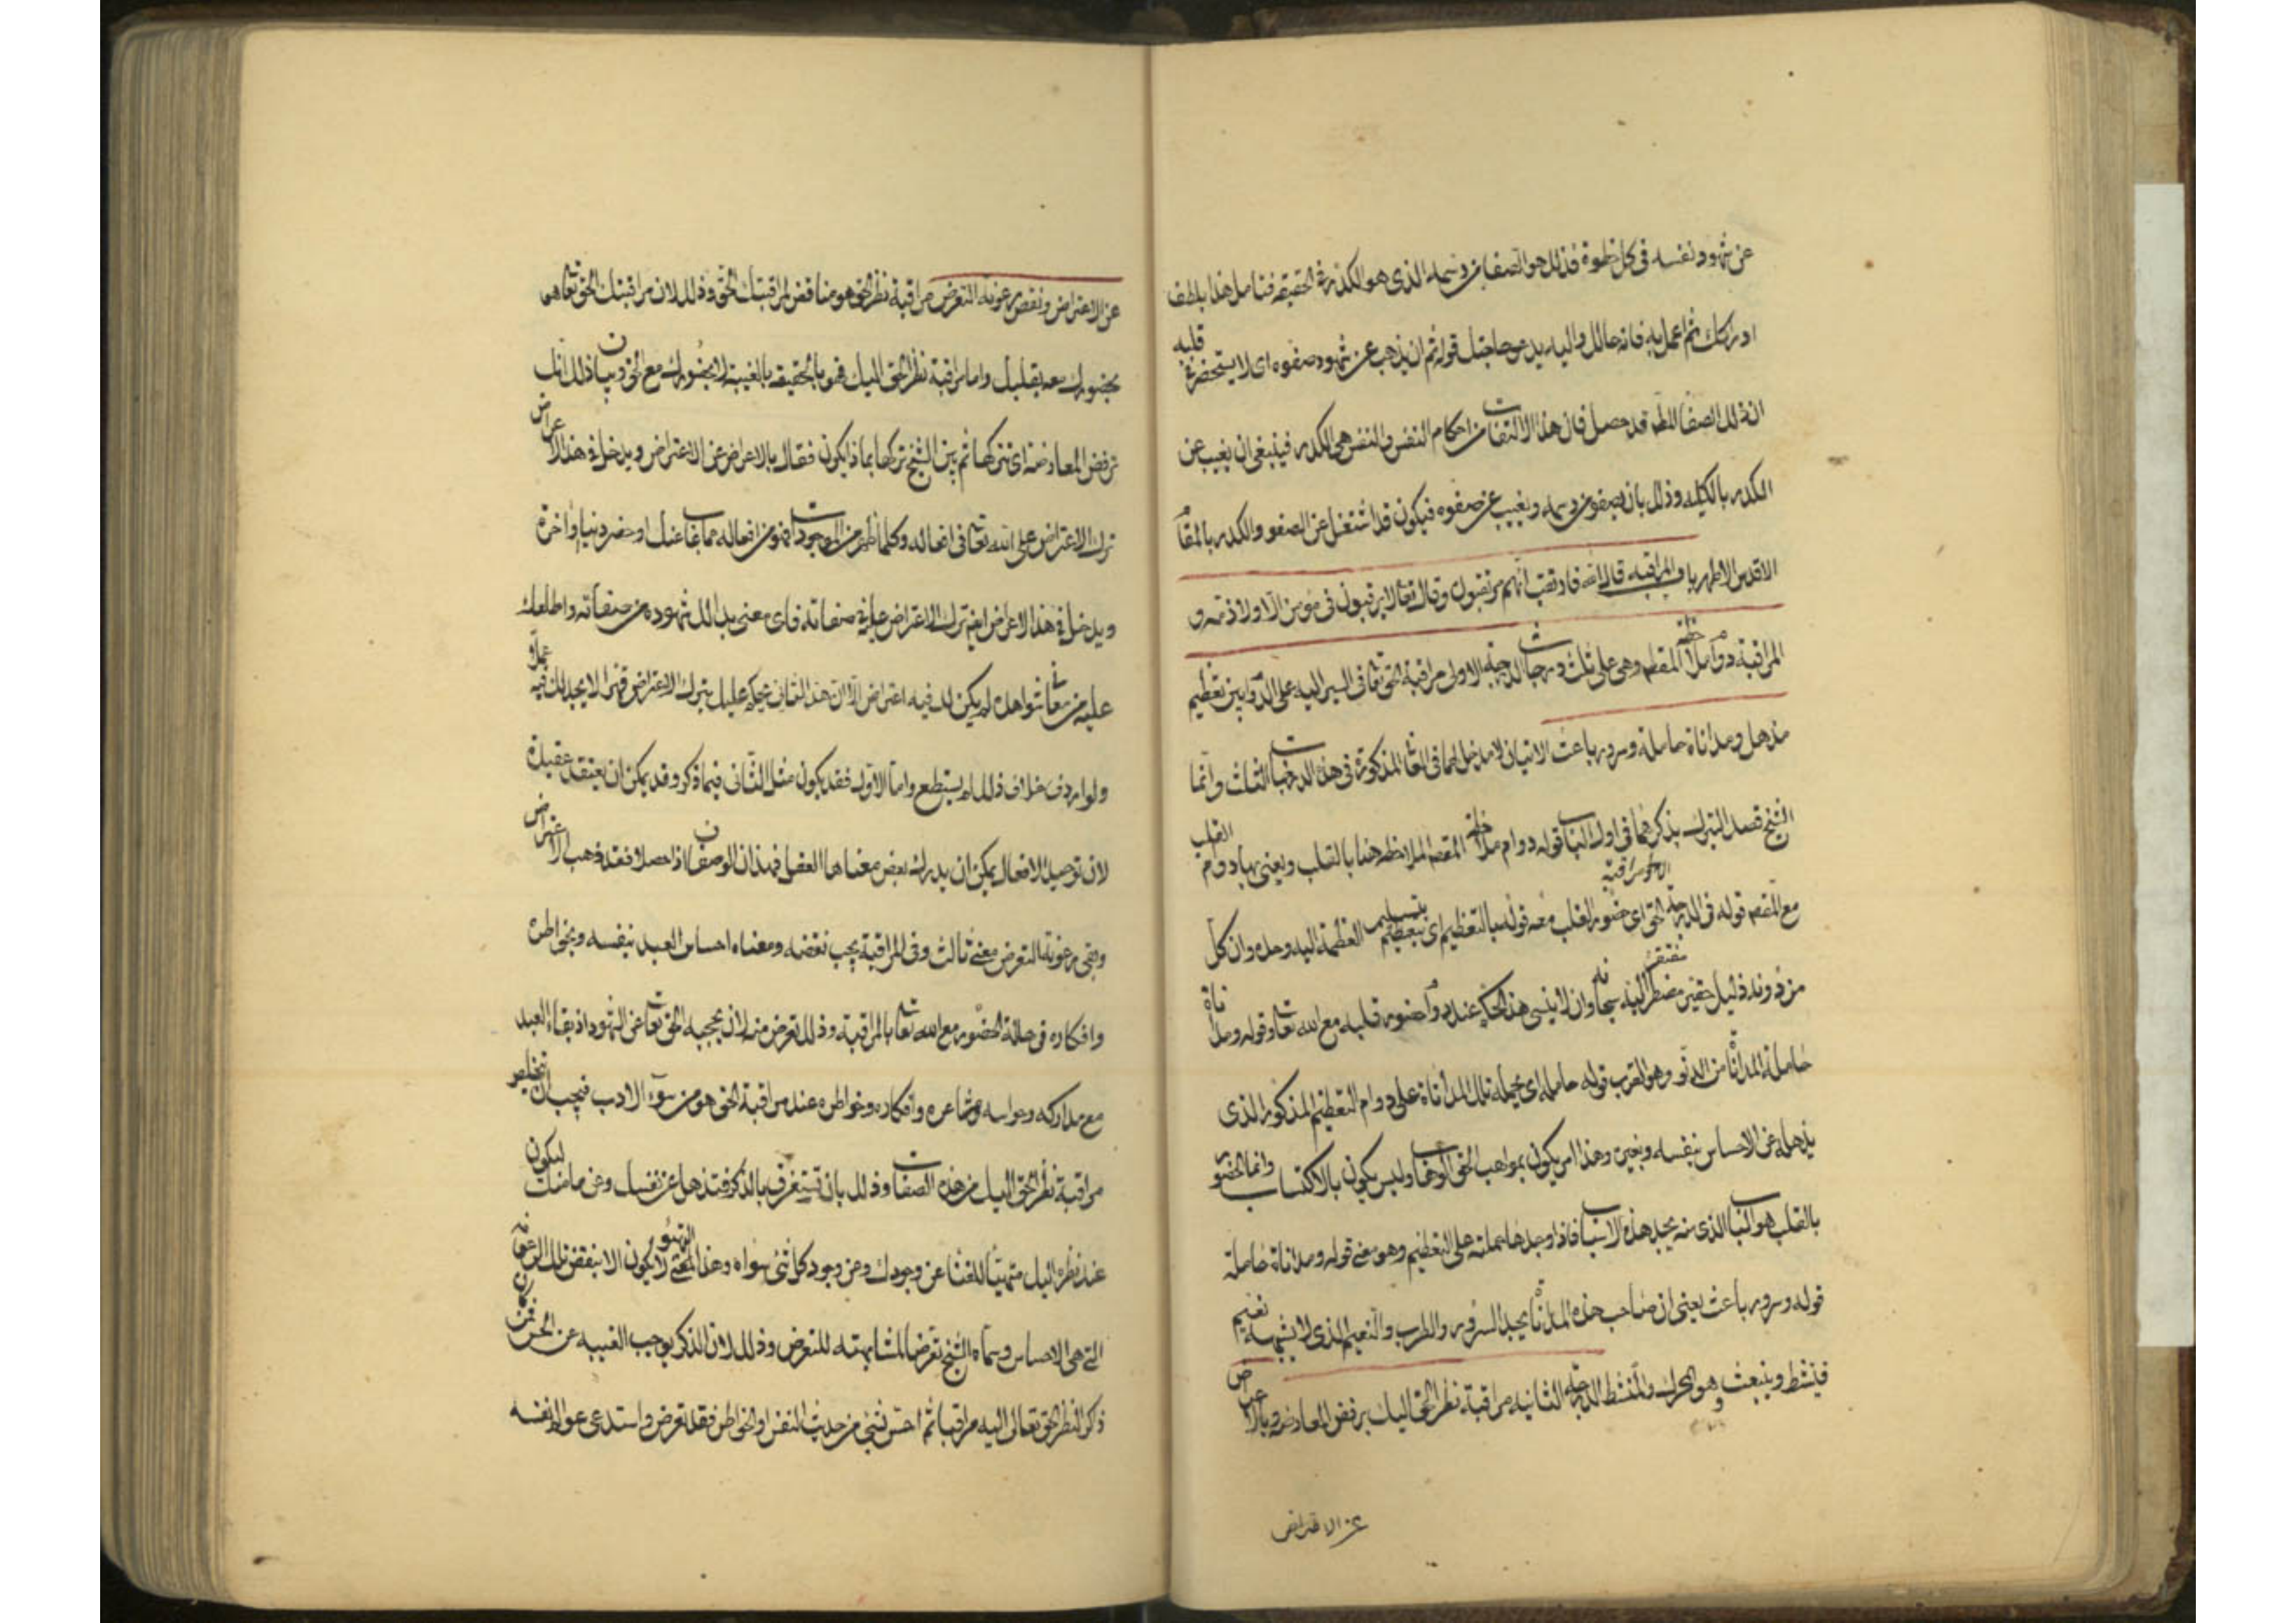 عن شهود نفسه فى كل خطوة فذلك هو الصفا من وسمه الذى هو الكدر فى الحقيقة فتامل هذا بلطف
ادراكك ثم اعمل به فانه حالك واليه يدعو حاجتك قوله ثم ان يذهب عن شهود صفوه اى لا يستحضر قلبه
ان ذلك الصفا المط قد حصل فان هذا الالتفات من احكام النفس والنفس هى الكدر فينبغى ان يغيب عن
الكدر بالكلية وذلك بان يصفو من وسمه ويغيب عن صفوه فيكون قد اشتغل عن الصفو والكدر بالمقام
الاقدس الاطهر باب المراقبه قال الله فارتقب انهم مرتقبون وقال تعالى لا يرقبون فى مؤمن الا ولا ذمة و
المراقبة دوام ملاحظة المقصد وهى على ثلث درجات الدرجة الاولى مراقبة الحق تعالى فى السير اليه على الدوام بين تعظيم
مذهل ومداناة حاملة وسرور باعث الاتيان لا مدخل لها فى المذكورة فى هذه الدرجات الثلث وانما
الشيخ قصد التبرك بذكرهما فى اول الباب قوله دوام ملاحظة المقصد الملاحظة هنا بالقلب ويعنى بها دوام القلب
مع المقصد قوله فى الدرجة الاولى مراقبة الحق اى حضور القلب معه قوله بالتعظيم اى بتعظيم بتسليم العظمة اليه وحده وان كل
من دونه ذليل حقير مضطر مفتقر اليه سبحانه وان لا ينسى هذا الحكم عند دوام حضور قلبه مع الله تعالى وقوله ومداناة
حاملة المداناة من الدنو وهو القرب قوله حاملة اى تحمله تلك المداناة على دوام التعظيم المذكور الذى
يذهله عن الاحساس بنفسه وبغيره وهذا امر يكون بمواهب الحق الوهاب وليس يكون بالاكتساب وانما الحضور
بالقلب هو الباب الذى منه يجد هذه الاسباب فاذا وجدها حملته على التعظيم وهو معنى قوله ومداناة حاملة
قوله وسرور باعث يعنى ان صاحب هذه المداناة يجد السرور والطرب والنعيم الذى لا يشبهه نعيم
فينشط وينبعث وهو المحرك والمنشط الدرجة الثانية مراقبة نظر الحق اليك برفض المعارضة وبالاعراض
عن الاعتراض
عن الاعتراض ونقض رعونة التعرض مراقبة نظر الحق هو مناقض لمراقبتك الحق وذلك لان مراقبتك الحق تعالى هى
بحضورك معه بقلبك واما مراقبة نظر الحق اليك فهو بالحقيقة بالغيبة لا بحضورك مع الحق وبيان ذلك انك
ترفض المعارضة اى تتركها ثم بين الشيخ تركها بماذا يكون فقال بالاعراض عن الاعتراض ويدخل فى هذا الاعراض
ترك الاعتراض على الله تعالى فى افعاله وكلما ظهر من الموجودات فهو من افعاله مما غاب عنك او حضر دنيا واخرة
ويدخل فى هذا الاعراض ايضا ترك الاعتراض عليه فى صفاته فاى معنى بدا لك شهوده من صفاته واطلعك
عليه من معانى شواهده لم يكن لك فيه اعتراض الا ان هذا الثانى يحكم عليك بترك الاعتراض قهرا لا يجد لك فيه عملا
ولو اردت خلاف ذلك لم يستطع واما الاول فقد يكون مثل الثانى فيما ذكر وقد يمكن ان يعتقد عقيدة
لان توحيد الافعال يمكن ان يدرك بعض معناها العقل فهذان الوصفان اذا حصلا فقد ذهب الاعتراض
وبقى رعونة التعرض معنى ثالث وفى المراقبة يجب نقضه ومعناه احساس العبد بنفسه وبخواطره
وافكاره فى حالة الحضور مع الله تعالى بالمراقبة وذلك تعرض منه لان يحجبه الحق تعالى عن الشهود اذ بقاء العبد
مع مداركه وحواسه ومشاعره وافكاره وخواطره عند مراقبة الحق هو من سوء الادب فيجب ان تخلص
مراقبة نظر الحق اليك من هذه الصفات وذلك بان تستغرق بالذكر فتذهل عن نفسك وعن ما منك ليكون
عند نظره اليك متهيئا للفنا عن وجودك وعن وجود كل شئ سواه وهذا التهيؤ لا يكون الا بنقض تلك الرعونة
التى هى الاحساس وسماه الشيخ تعرضا لمشابهته للتعرض وذلك لان الذكر يوجب الغيبة عن الحس فمن كان
ذكر النظر الحق تعالى اليه مراقبا ثم احس بشئ من حديث النفس او الخواطر فقد تعرض واستدعى عوالم نفسه